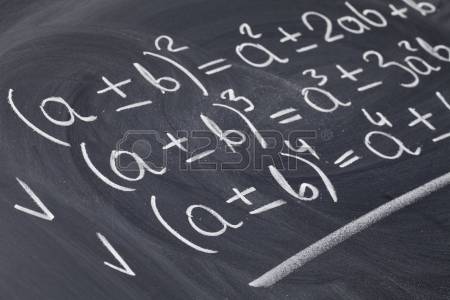 (a ± b)² = a² ± 2ab + b
(a ± b)³ = a³ ± 3a²b
(a ± b)⁴ = a⁴ ±
123RF